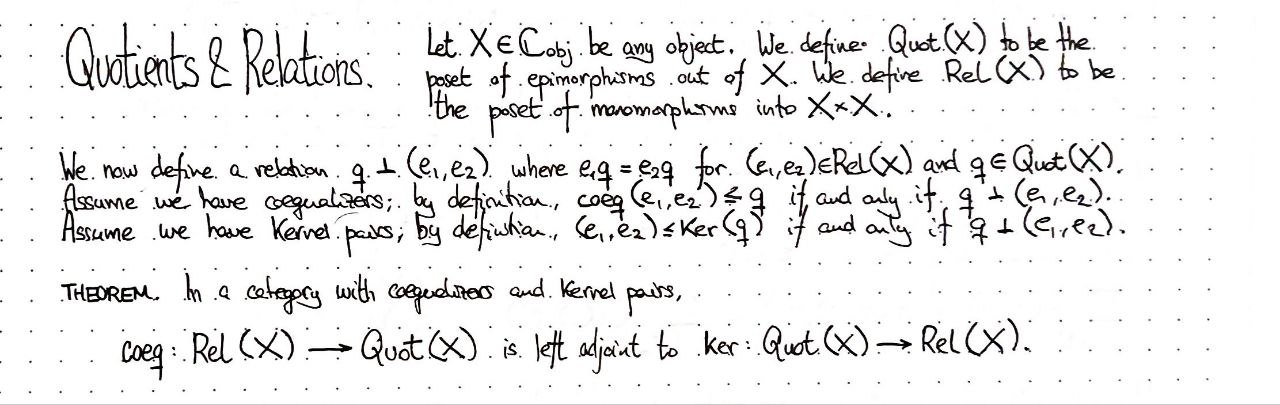 Quotients & Relations.
Let X ∈ C_obj be any object. We define Quot(X) to be the
poset of epimorphisms out of X. We define Rel(X) to be
the poset of monomorphisms into X×X.
We now define a relation q ⊥ (e₁,e₂) where e₁q = e₂q for (e₁,e₂)∈Rel(X) and q ∈ Quot(X).
Assume we have coequalizers; by definition, coeq(e₁,e₂) ≤ q if and only if q ⊥ (e₁,e₂).
Assume we have Kernel pairs; by definition, (e₁,e₂) ≤ Ker(q) if and only if q ⊥ (e₁,e₂).
THEOREM. In a category with coequalizers and Kernel pairs,
coeq: Rel(X) → Quot(X) is left adjoint to ker: Quot(X) → Rel(X).